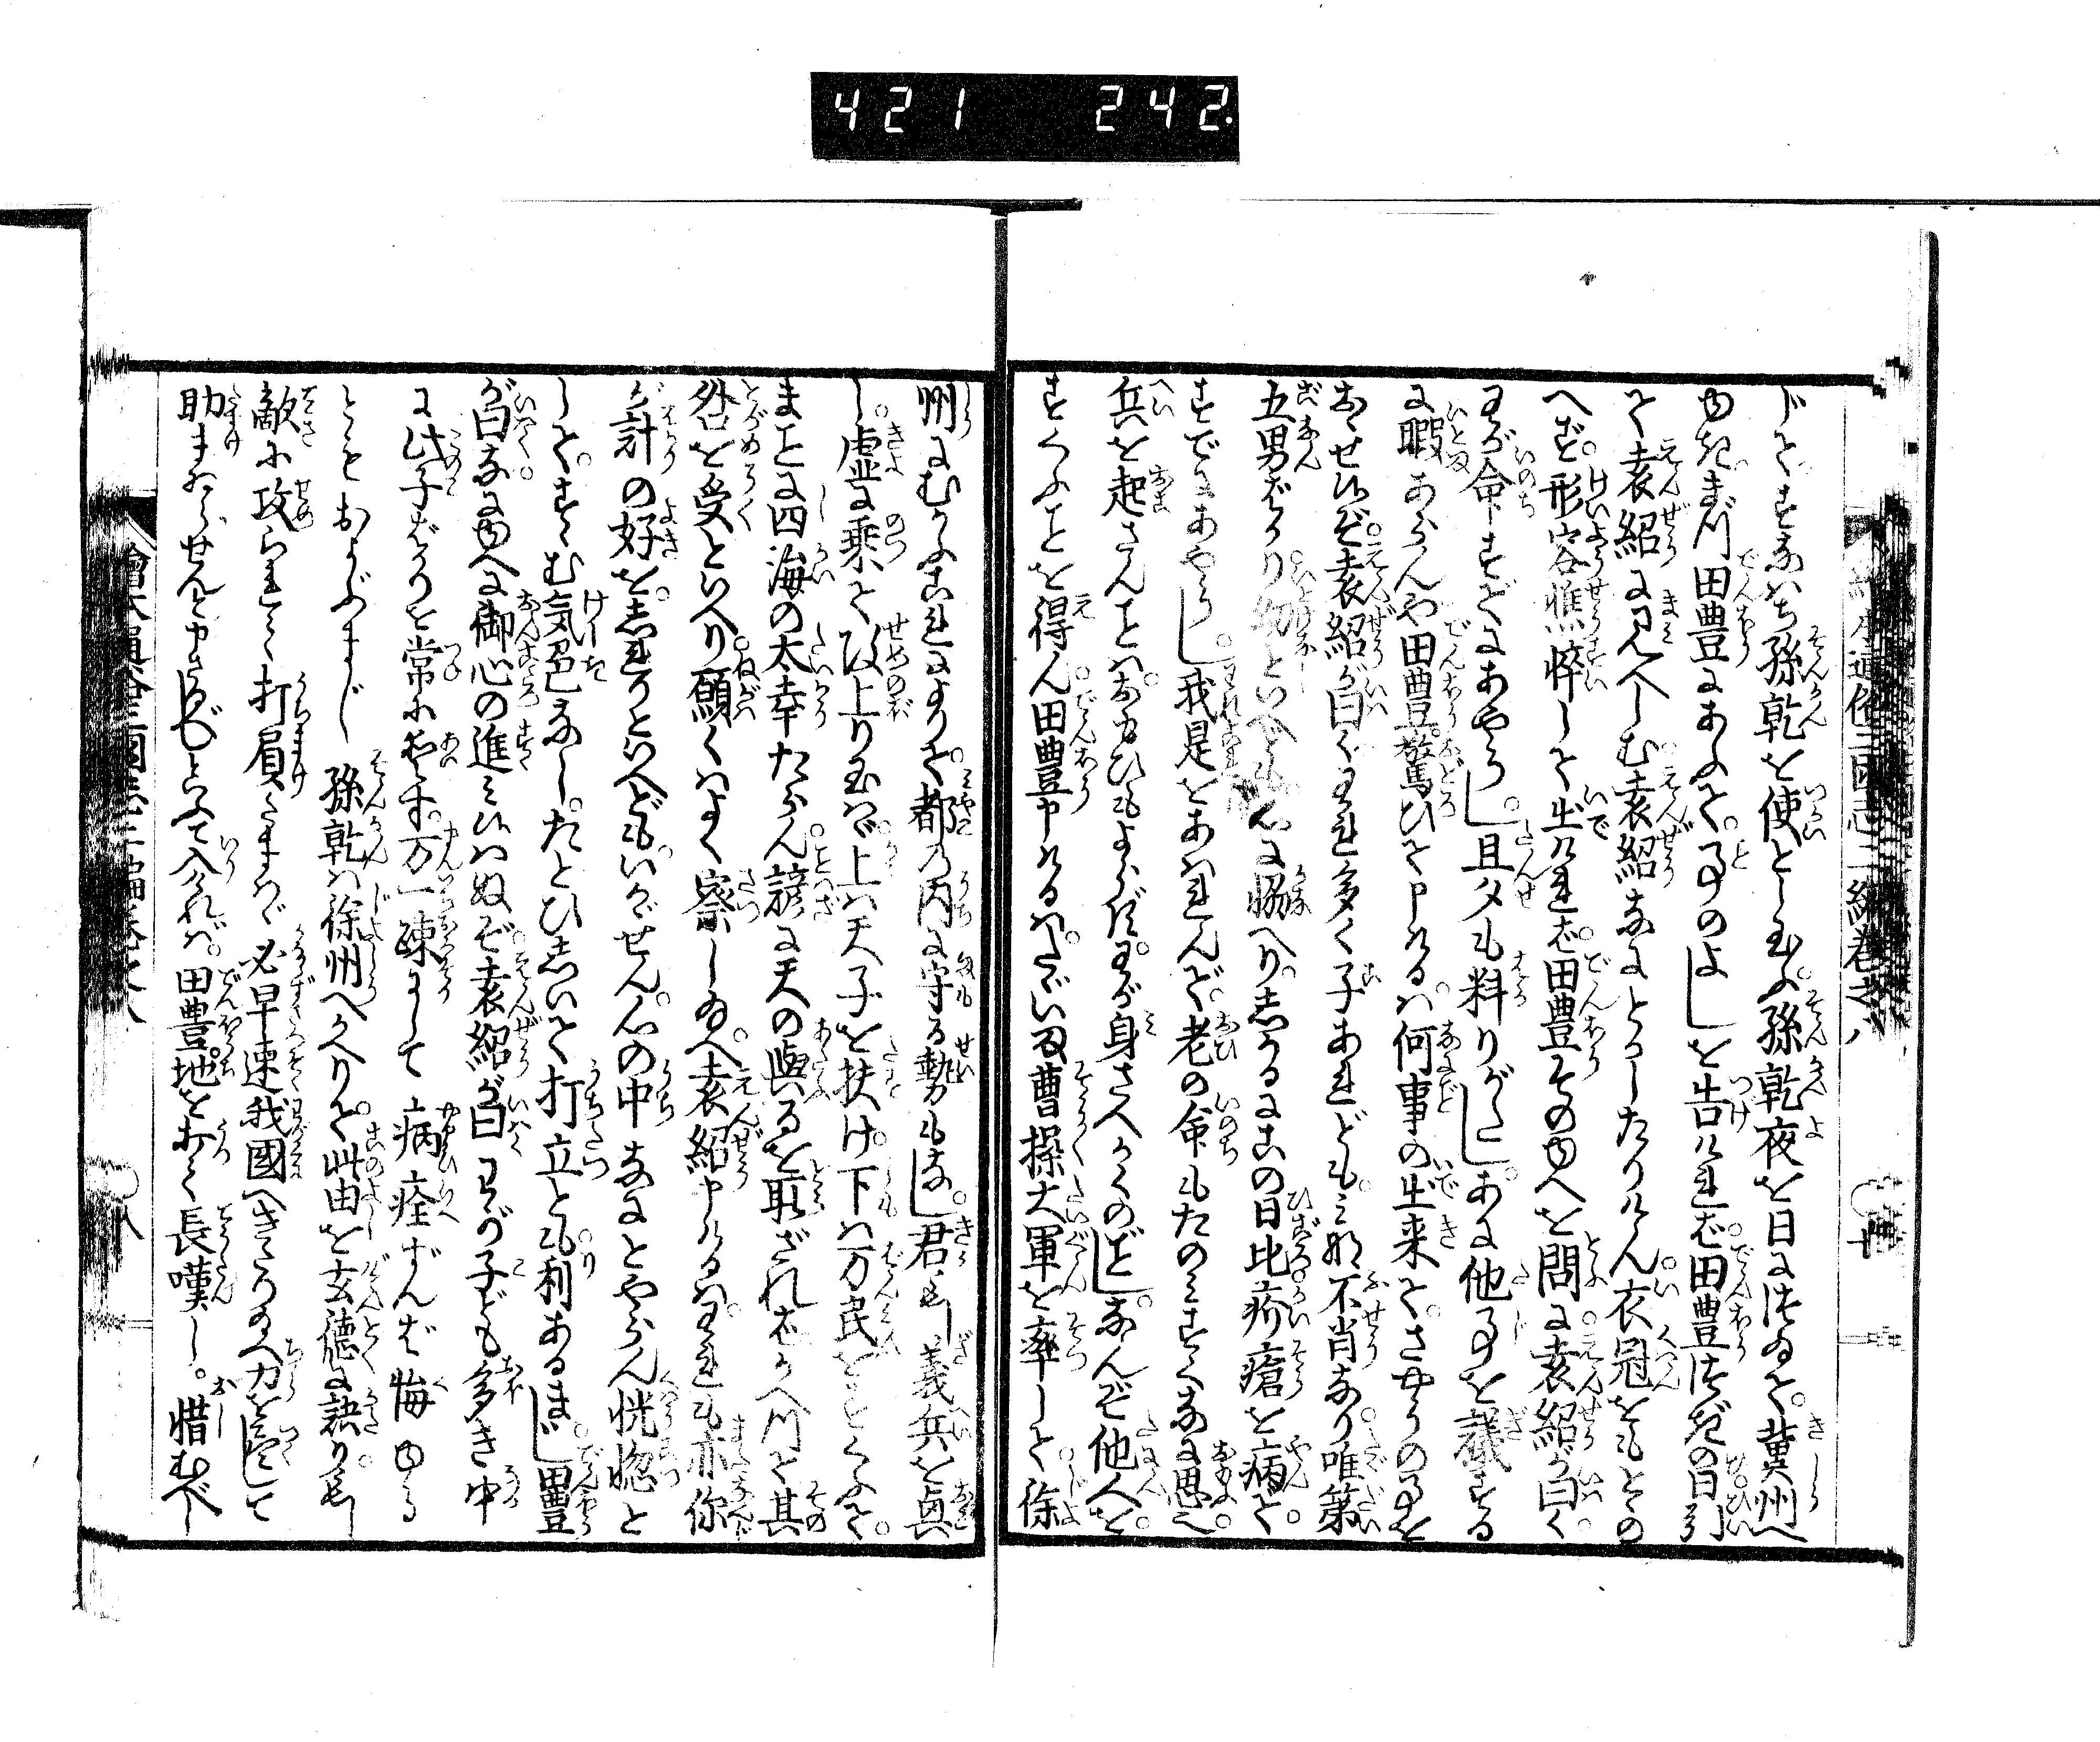 421 242.
じとすなはち孫乾を使としたまふ孫乾夜を日につゐで冀州へ
ゆきまづ田豊にあふて事のよしを告ければ田豊つぎの日引
て袁紹に見へしむ袁紹なにとかしたりけん衣冠をもとゝの
へず形容憔悴して出ければ田豊そのゆへを問に袁紹が曰く
わが命すでにあやうし且夕も料りがたしあに他事を議する
に暇あらんや田豊驚ひて申けるは何事の出来てさやうの事を
おほせ候ぞ袁紹が曰くわれ多く子あれどもみな不肖なり唯第
五男ばかり幼といへども心に協へりしかるにこの日比疥瘡を病て
すでにあやうし我是をあはれんで老の命もたのみすくなに思へり
兵を起さんことはおもひもよらずわが身さへかくのごとしなんぞ他人を
すくふことを得ん田豊申けるはたゞいま曹操大軍を率して徐
州にむかふこれによりて都の内に守る勢もなし君もし義兵を興
し虚に乗て攻上り玉はゞ上は天子を扶け下は万民をすくふて
まことに四海の大幸たらん諺に天の與るを取ざればかへつて其
咎を受といへり願くはよく察し給へ袁紹申けるはわれも亦你
が計の好をしれりといへどもいかゞせん心の中なにとやらん恍惚と
してすゝむ気色なしたとひしいて打立とも利あるまじ田豊
が曰なにゆへに御心の進み候はぬぞ袁紹が曰わが子ども多き中
に此子ばかりを常に愛す万一疎にして病痊ずんば悔ゆる
ともおよぶまじ孫乾は徐州へかへりて此由を玄徳に語りもし
敵に攻られて打負たまはゞ必早速我國へきたり給へ力を尽して
助まゐらせんと申さるべしとて入ければ田豊地を打て長嘆し惜むべし